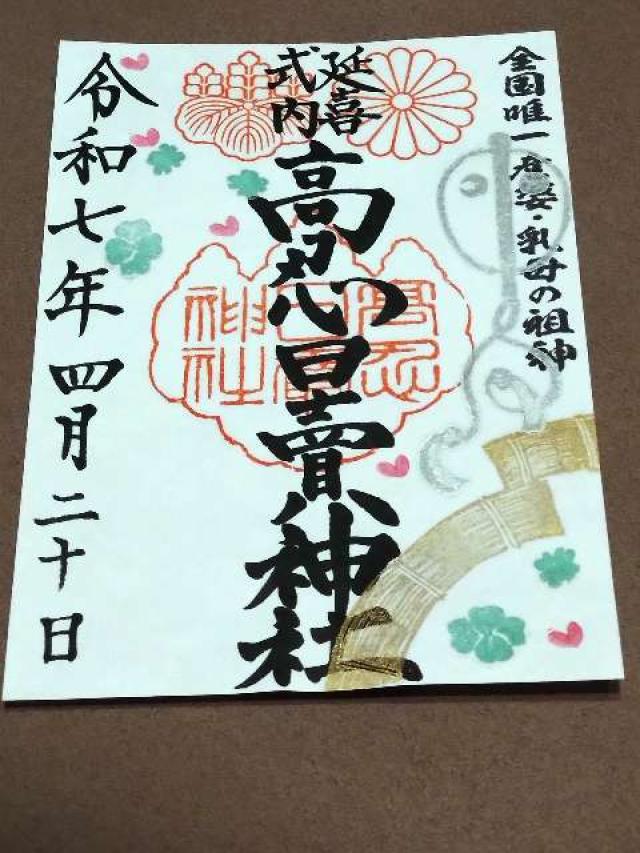 全国唯一産婆・乳母の祖神
延喜
式内
高忍日賣神社
高忍
日賣
神社
令和七年四月二十日